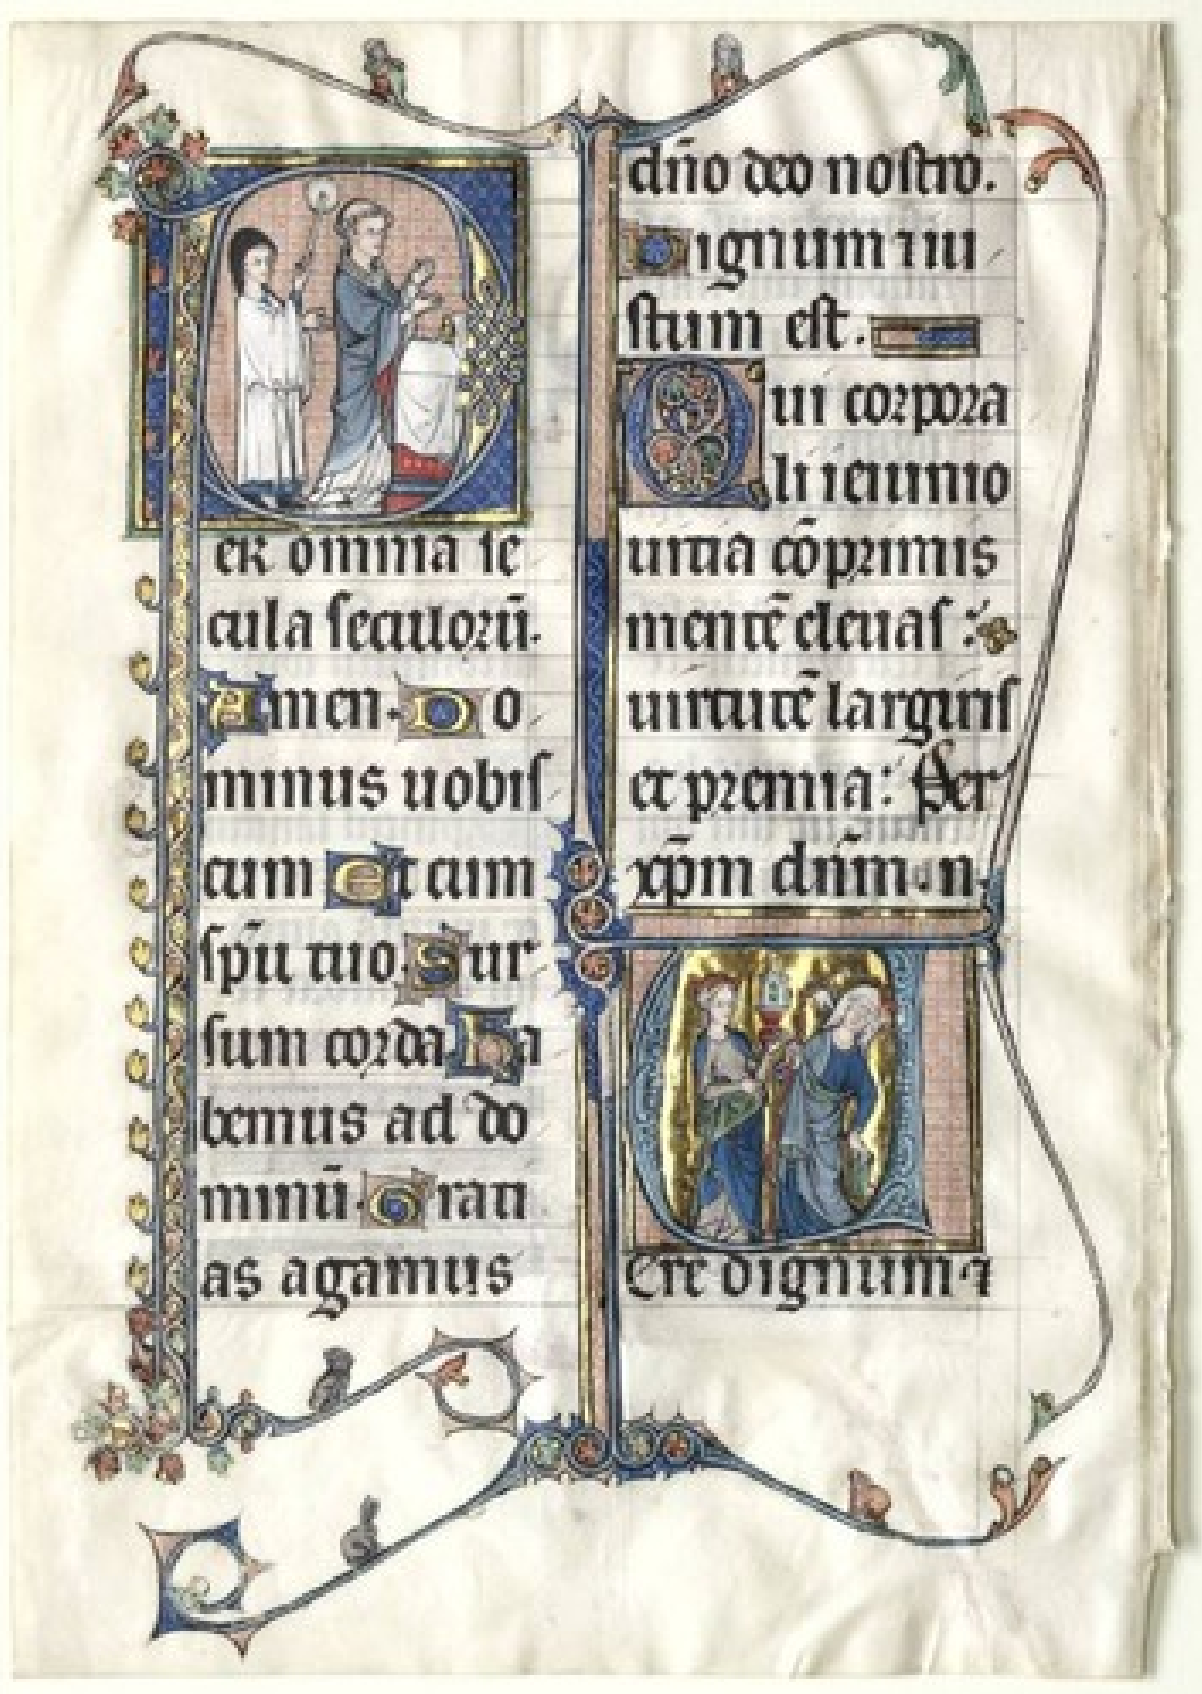 Per omnia se
cula seculorū.
Amen. Do
minus uobis
cum Et cum
spū tuo. Sur
sum corda Ha
bemus ad do
minū. Grati
as agamus
dño deo nostro.
Dignum ⁊ iu
stum est.
Qui corpora
li ieiunio
uitia cōprimis
mentē eleuas:
uirtutē largiris
et premia: Per
xp̄m dn̄m. n.
Uere dignum ⁊